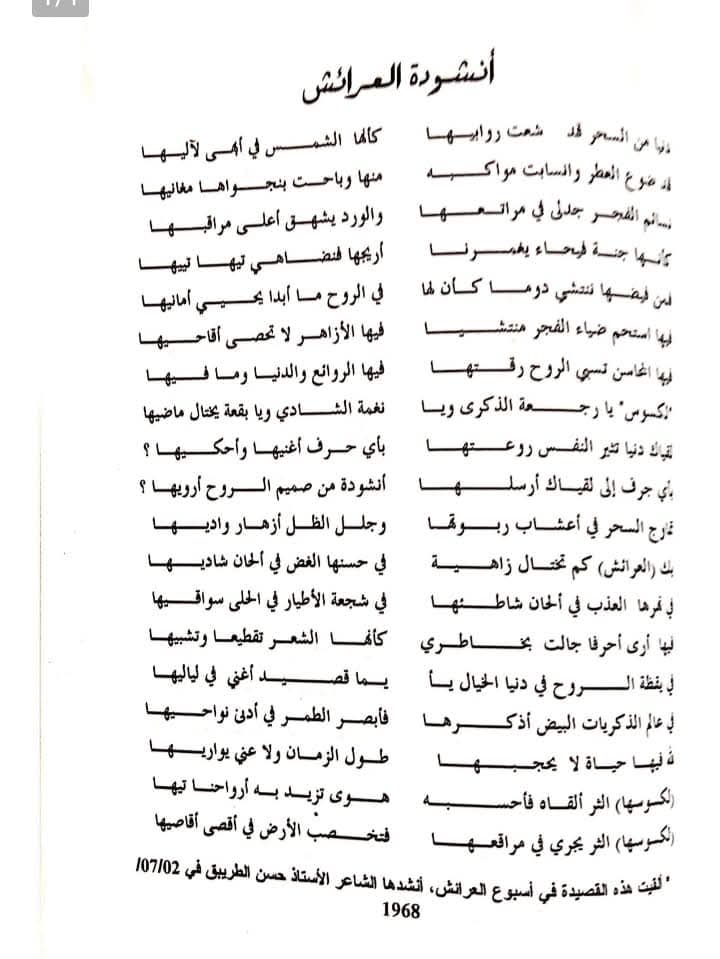 1/1
أنشودة العرائش
دنيا من السحر قد شعت روابيها كألها الشمس في أبهى لآليها
قد ضوع العطر وانسابت مواكبه منها وباحت بنجواها مغانيها
نسائم الفجر جدلى في مراتعها والورد يشهق أعلى مراقبها
كأنها جنة فيحاء يغمرنا أريجها فنضاهي تيها تييها
فمن فيضها ننتشي دوما كأن لها في الروح ما أبدا يحيي أمانيها
فيها استحم ضياء الفجر منتشيا فيها الأزاهر لا تحصى أقاحيها
فيها المحاسن تسبي الروح رقتها فيها الروائع والدنيا وما فيها
"لكسوس" يا رجعة الذكرى ويا نغمة الشادي ويا بقعة يختال ماضيها
لقياك دنيا تثير النفس روعتها بأي حرف أغنيها وأحكيها ؟
بأي جرف إلى لقياك أرسلها أنشودة من صميم الروح أرويها ؟
تمازج السحر في أعشاب ربوتها وجلل الظل أزهار واديها
بك (العرائش) كم تختال زاهية في حسنها الغض في ألحان شاديها
في نهرها العذب في ألحان شاطئها في شجعة الأطيار في الحلى سواقيها
فيها أرى أحرفا جالت بخاطري كألها الشعر تقطيعا وتشبيها
في يقظة الروح في دنيا الخيال يأ يما قصيد أغني في لياليها
في عالم الذكريات البيض أذكرها فأبصر الطمر في أدنى نواحيها
لله فيها حياة لا يحجبها طول الزمان ولا عني يواريها
(لكسوسها) الثر ألقاه فأحسبه هوى تزيد به أرواحنا تيها
(لكسوسها) الثر يجري في مراقعها فتخصب الأرض في أقصى أقاصيها
* ألقيت هذه القصيدة في أسبوع العرائش، أنشدها الشاعر الأستاذ حسن الطريبق في 07/02/
1968